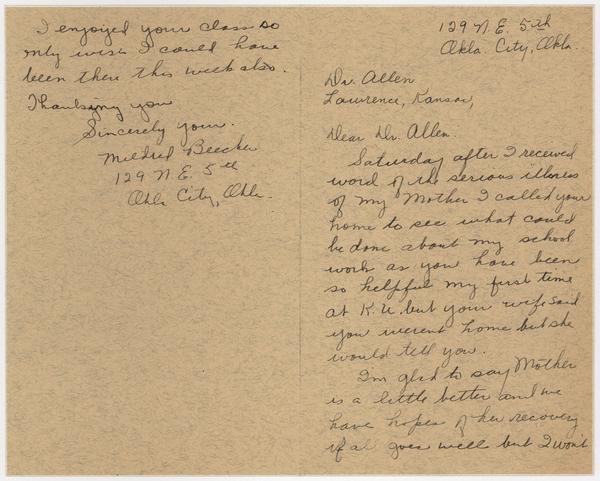 129 N.E. 5th
Okla. City, Okla.
Dr. Allen
Lawrence, Kansas,
Dear Dr. Allen.
Saturday after I received
word of the serious illness
of my Mother I called your
home to see what could
be done about my school
work as you have been
so helpful my first time
at K.U. but your wife said
you weren't home but she
would tell you.
I'm glad to say Mother
is a little better and we
have hopes of her recovery
if al goes well but I won't
I enjoyed your class so
only wish I could have
been there this week also.
Thanking you
Sincerely your.
Mildred Beecher
129 N.E. 5th
Okla City, Okla.